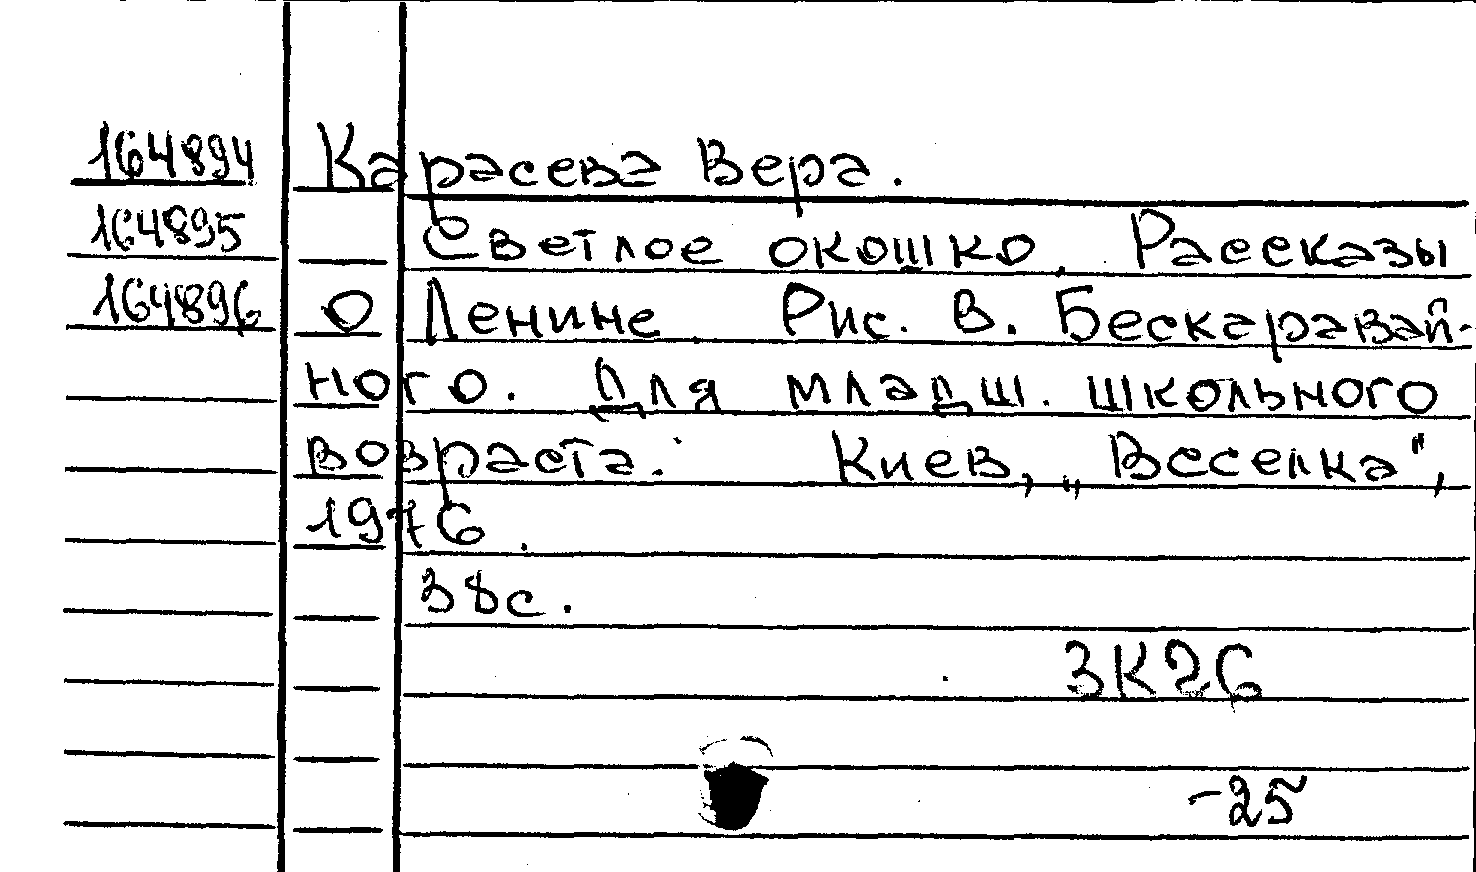 164894 Карасева Вера.
164895 Светлое окошко. Рассказы
164896 о Ленине Рис. В. Бескаравай-
ного. Для младш. школьного
возраста. Киев, „Веселка",
1976.
38с.
3К26
-25